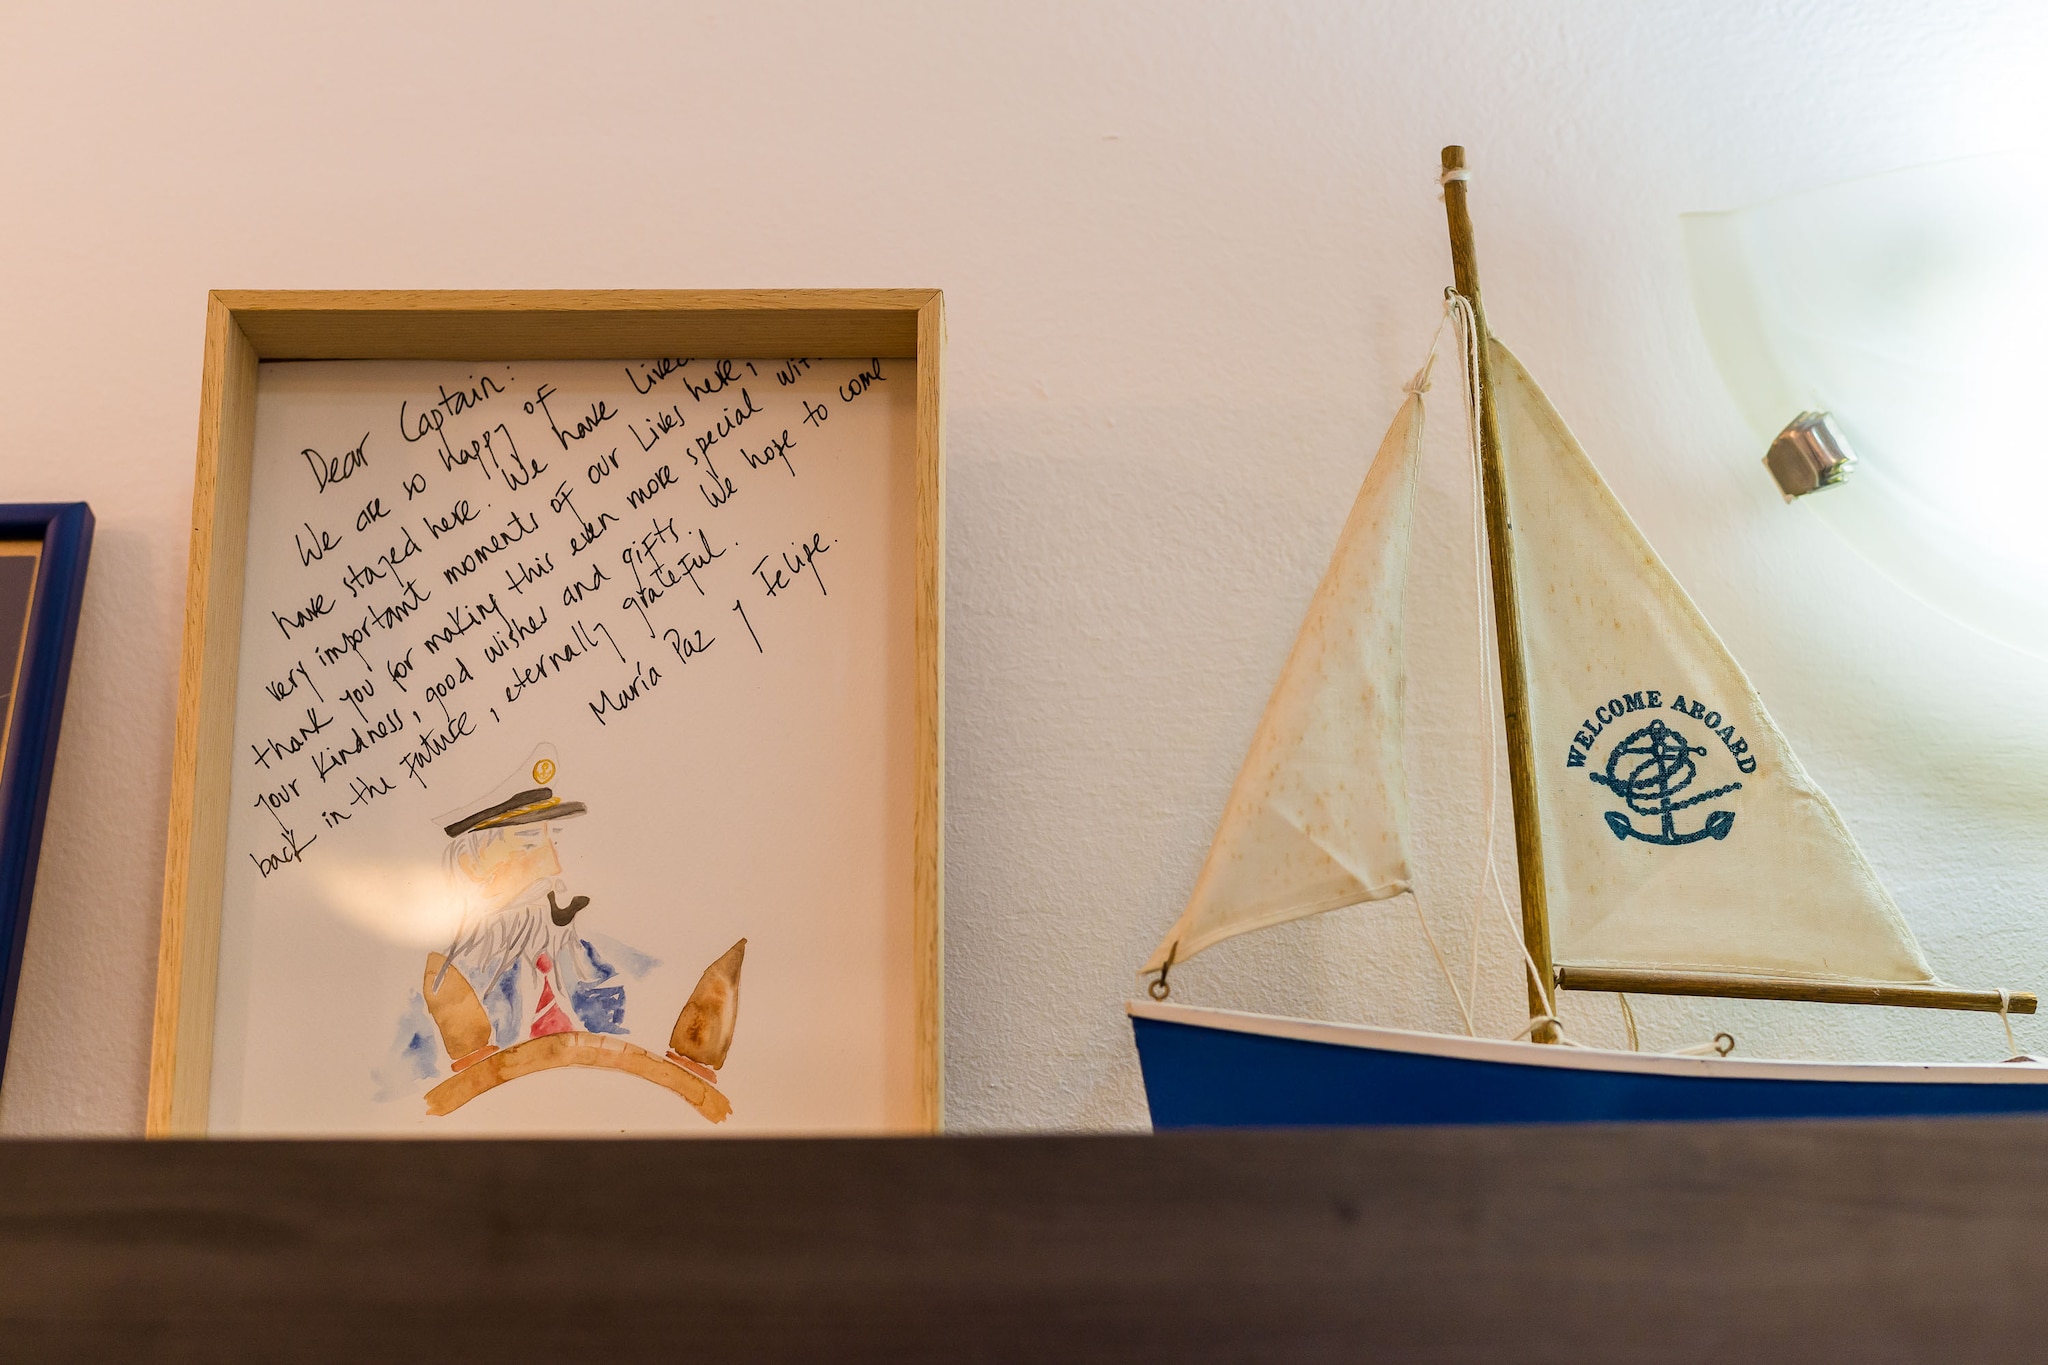 Dear Captain:
We are so happy of
have stayed here. We have lived
very important moments of our Lives here,
thank you for making this even more special with
your kindness, good wishes and gifts. We hope to come
back in the Future, eternally grateful.
María Paz y Felipe.
WELCOME ABOARD